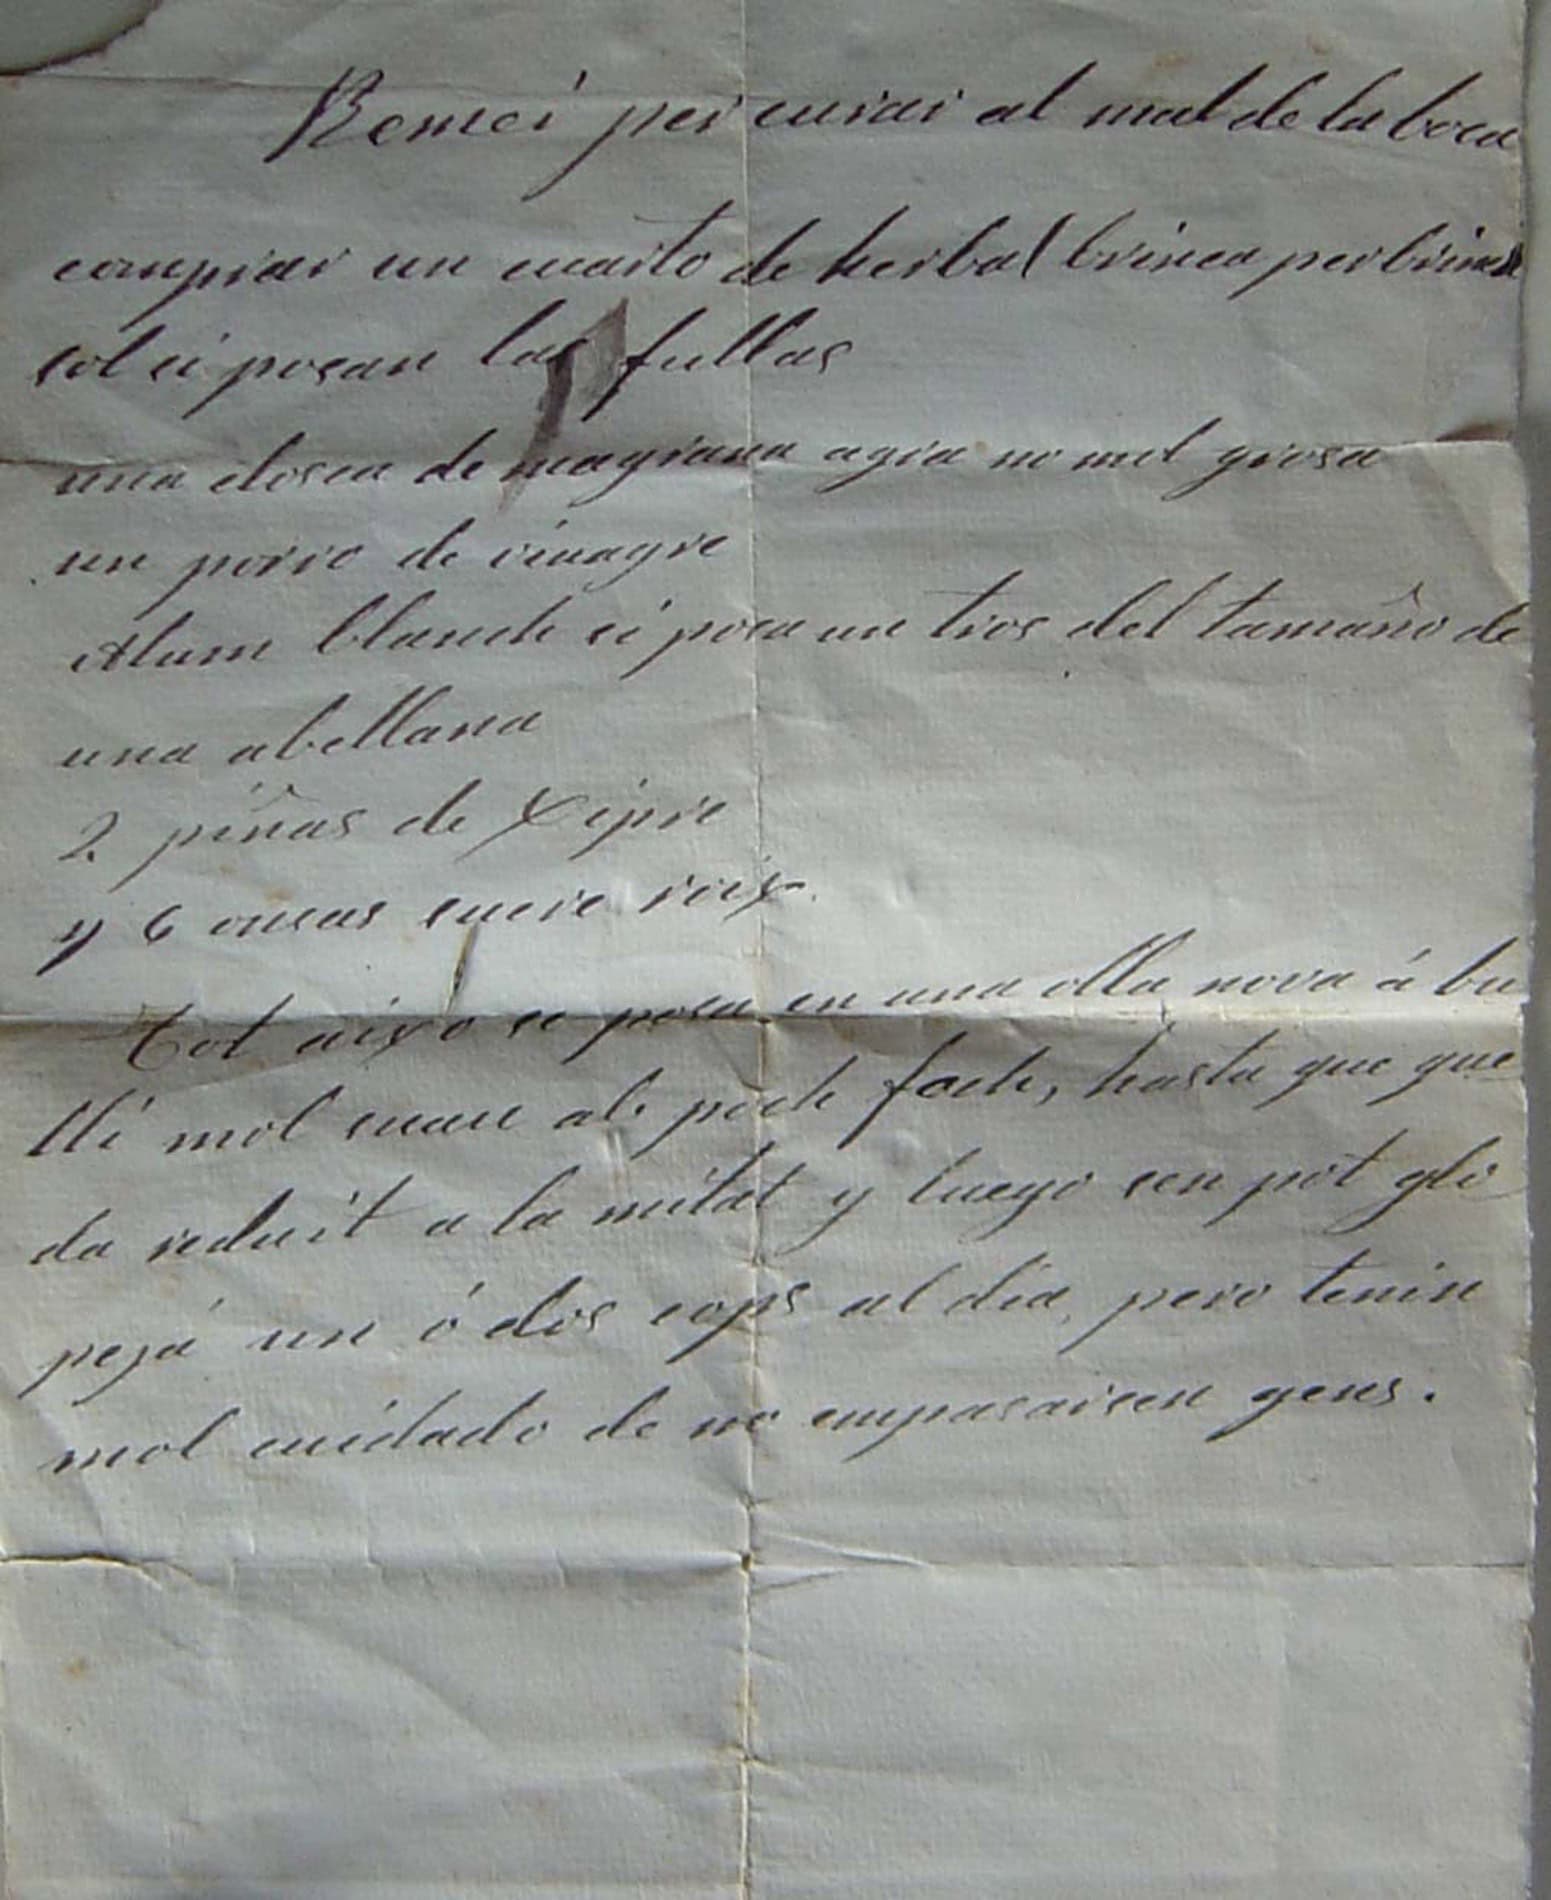 Remei per curar al mal de la boca
comprar un cuarto de herbal brinca per brinca
sol si posan las fullas
una closca de magrana agra no mol grosa
un porro de vinagre
Alum blanch si posa un tros del tamaño de
una abellana
2 piñas de Xipre
y 6 onsas sucre roix
Tot aixo se posa en una olla nova á bu
lli mol suau ab poch foch, hasta que que
da reduit a la mitat y luego sen pot glo
pejá un ó dos cops al dia, pero tenin
mol cuidado de no empasarsen gens.